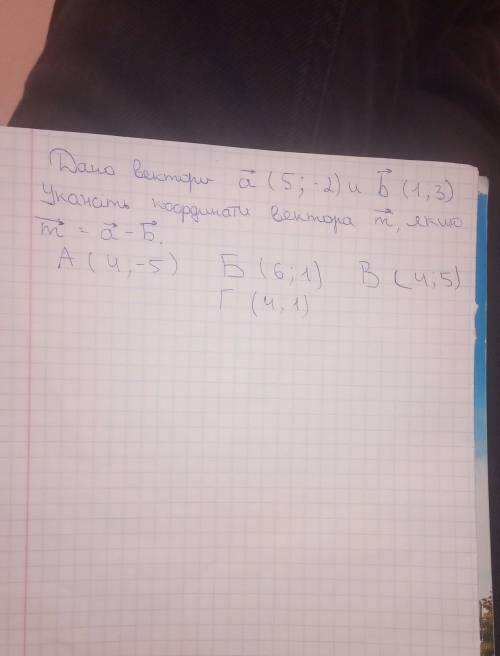 Дано вектори a⃗ (5; -2) и b⃗ (1,3)
Укажіть координати вектора m⃗, якшо
m⃗ = a⃗ - b⃗.
А (4,-5) Б (6;1) В (4,5)
Г (4,1)